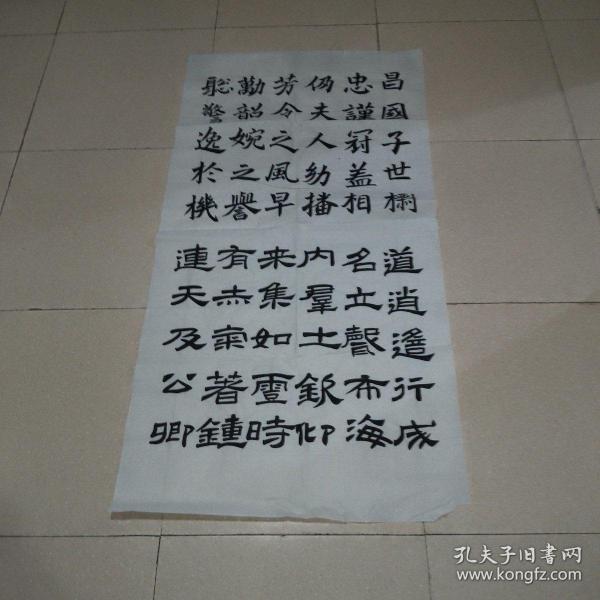 昌國子世標
忠謹冠蓋相
仍夫人幼播
芳令之風早
勤韶婉之譽
聡警逸於機
道逍遙行成
名立聲布海
内羣士欽仰
来集如雲時
有赤氣著鍾
連天及公卿
孔夫子旧書网
www.kongfz.com